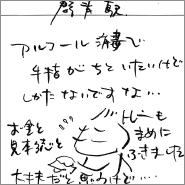 アルコール消毒で
手指がちといたいけど
しかたないですな…
トレーも
まめに
ふきましたね
お金と
見本紙と
大丈夫だと思うけど…